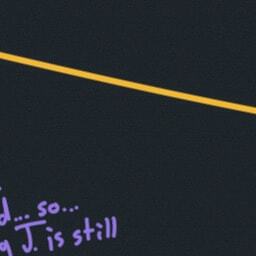 so...
J. is still